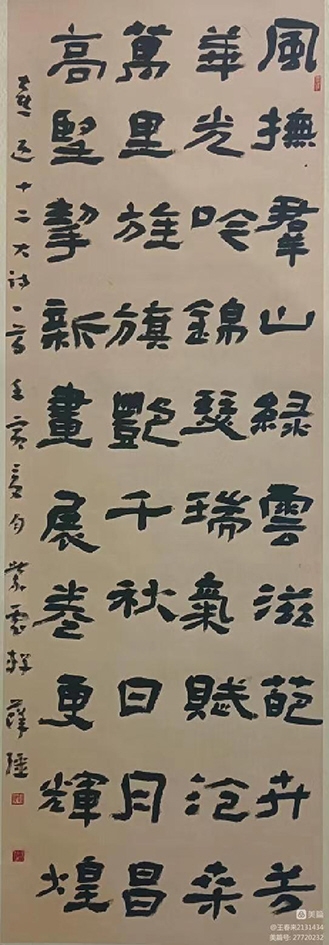 風撫羣山綠雲滋葩卉芳
華光吟錦瑟瑞氣賦沧桑
萬里旌旗艷千秋日月昌
高擎新畫展卷更輝煌
喜迎十二大诗一首壬寅夏月紫雲軒薛
美篇
@王春来2131434
美篇号: 27720232